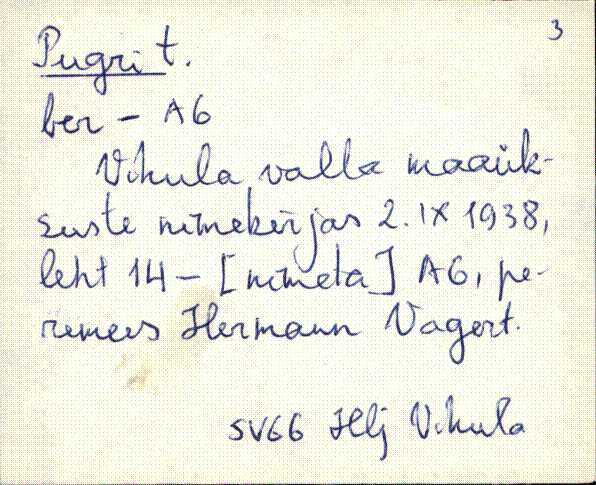 3
Pugri t.
ber - A6
Vihula valla maaük-
suste nimekirjas 2. IX 1938,
leht 14 - [nimeta] A6, pe-
remees Hermann Vagert.
SV66 Hlj Vihula